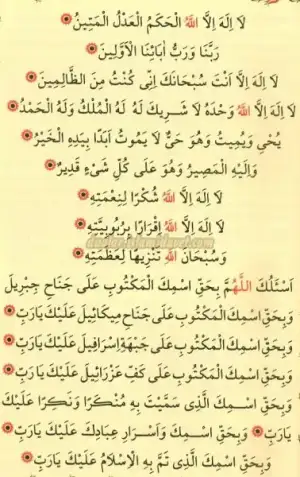 لَا اِلٰهَ اِلَّا اللّٰهُ الْحَكَمُ الْعَدْلُ الْمَتِينُ
رَبُّنَا وَرَبُّ اٰبَائِنَا الْاَوَّلِينَ
لَا اِلٰهَ اِلَّا اَنْتَ سُبْحَانَكَ اِنِّى كُنْتُ مِنَ الظَّالِمِينَ
لَا اِلٰهَ اِلَّا اللّٰهُ وَحْدَهُ لَا شَرِيكَ لَهُ لَهُ الْمُلْكُ وَلَهُ الْحَمْدُ
يُحْيِ وَيُمِيتُ وَهُوَ حَىٌّ لَا يَمُوتُ اَبَدًا بِيَدِهِ الْخَيْرُ
وَاِلَيْهِ الْمَصِيرُ وَهُوَ عَلَى كُلِّ شَىْءٍ قَدِيرٌ
لَا اِلٰهَ اِلَّا اللّٰهُ شُكْرًا لِنِعْمَتِهِ
لَا اِلٰهَ اِلَّا اللّٰهُ اِقْرَارًا بِرُبُوبِيَّتِهِ
وَسُبْحَانَ اللّٰهِ تَنْزِيهًا لِعَظَمَتِهِ
اَسْئَلُكَ اللّٰهُمَّ بِحَقِّ اسْمِكَ الْمَكْتُوبِ عَلَى جَنَاحِ جِبْرِيلَ
وَبِحَقِّ اسْمِكَ الْمَكْتُوبِ عَلَى جَنَاحِ مِيكَائِيلَ عَلَيْكَ يَارَبِّ
وَبِحَقِّ اسْمِكَ الْمَكْتُوبِ عَلَى جَبْهَةِ اِسْرَافِيلَ عَلَيْكَ يَارَبِّ
وَبِحَقِّ اسْمِكَ الْمَكْتُوبِ عَلَى كَفِّ عَزْرَائِيلَ عَلَيْكَ يَارَبِّ
وَبِحَقِّ اسْمِكَ الَّذِى سَمَّيْتَ بِهِ مُنْكَرًا وَنَكِيرًا عَلَيْكَ
يَارَبِّ وَبِحَقِّ اسْمِكَ وَاَسْرَارِ عِبَادِكَ عَلَيْكَ يَارَبِّ
وَبِحَقِّ اسْمِكَ الَّذِى تَمَّ بِهِ الْاِسْلَامُ عَلَيْكَ يَارَبِّ